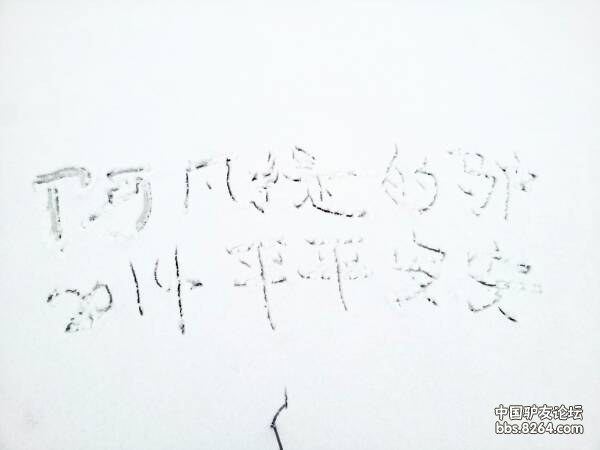 阿凡提的驴
2014平平安安
中国驴友论坛
bbs.8264.com